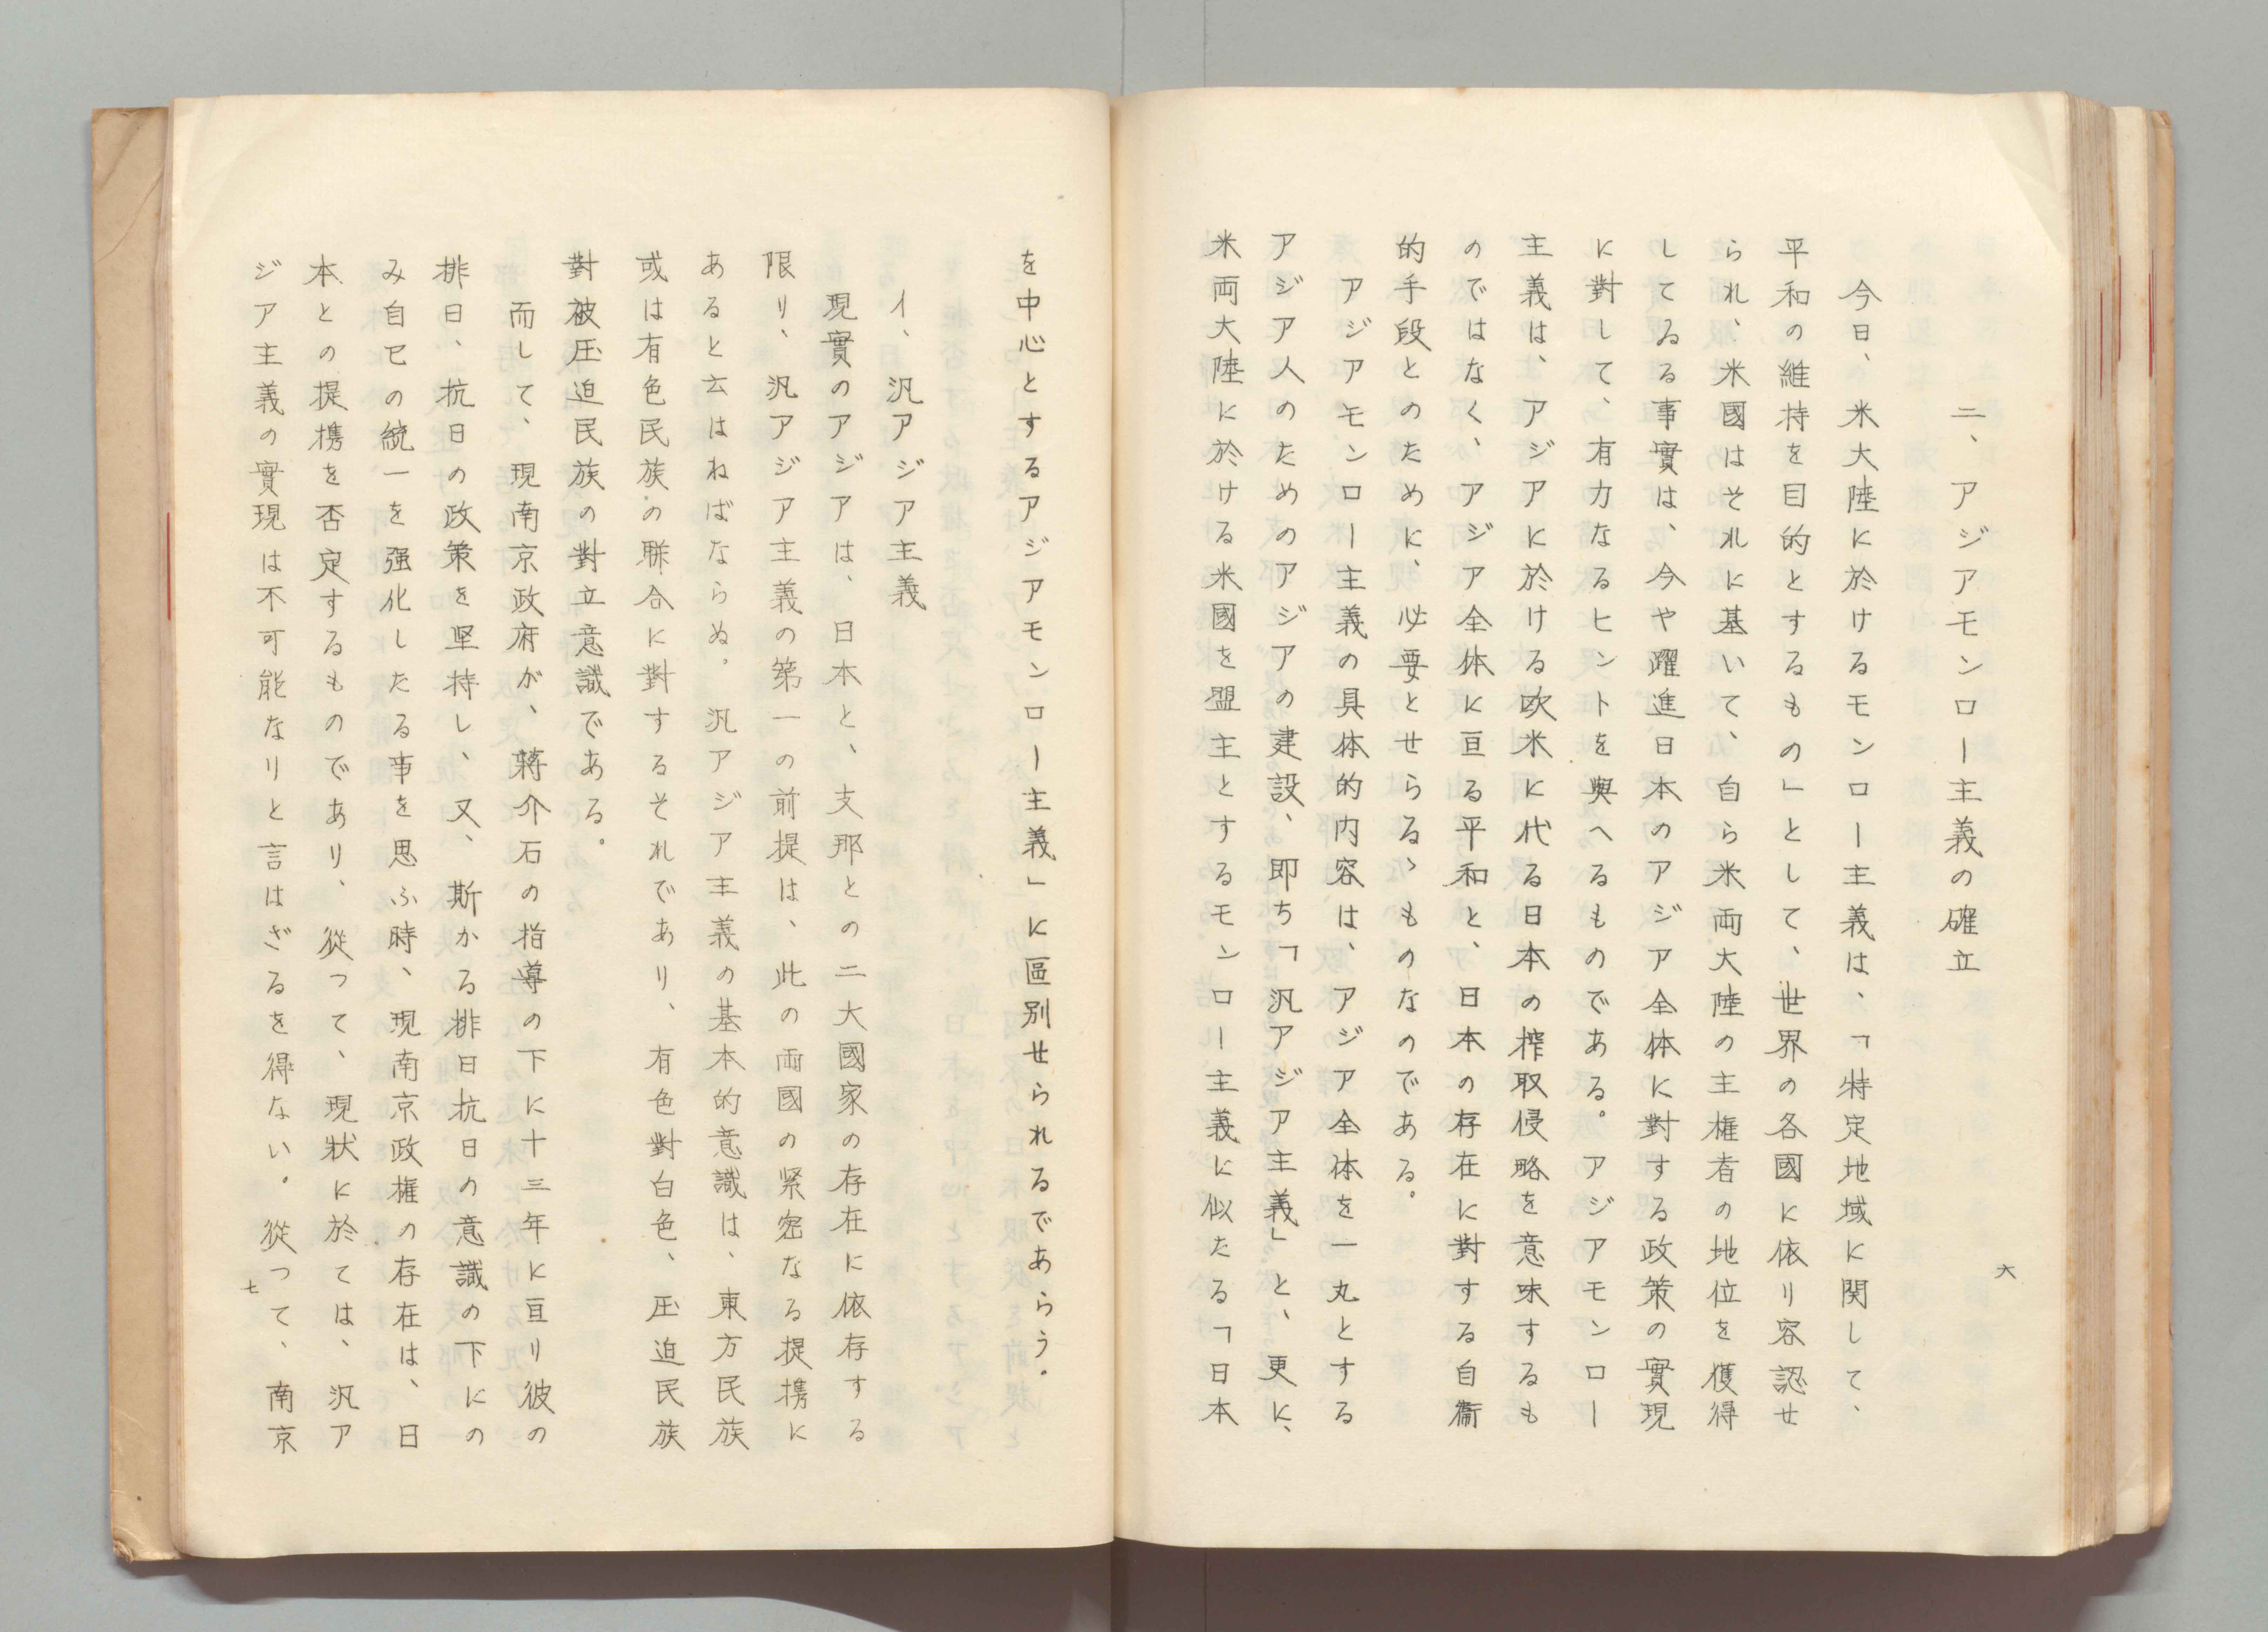 二、アジアモンロー主義の確立
今日、米大陸に於けるモンロー主義は、「特定地域に関して、
平和の維持を目的とするもの」として、世界の各國に依り容認せ
られ、米國はそれに基いて、自ら米両大陸の主権者の地位を獲得
してゐる事實は、今や躍進日本のアジア全体に對する政策の實現
に對して、有力なるヒントを與へるものである。アジアモンロー
主義は、アジアに於ける欧米に代る日本の搾取侵略を意味するも
のではなく、アジア全体に亘る平和と、日本の存在に對する自衞
的手段とのために、必要とせらるゝものなのである。
アジアモンロー主義の具体的内容は、アジア全体を一丸とする
アジア人のためのアジアの建設、即ち「汎アジア主義」と、更に、
米両大陸に於ける米國を盟主とするモンロー主義に似たる「日本
六
を中心とするアジアモンロー主義」に區別せられるであらう。
イ、汎アジア主義
現實のアジアは、日本と、支那との二大國家の存在に依存する
限り、汎アジア主義の第一の前提は、此の両國の緊密なる提携に
あると云はねばならぬ。汎アジア主義の基本的意識は、東方民族
或は有色民族の聯合に對するそれであり、有色對白色、圧迫民族
對被圧迫民族の對立意識である。
而して、現南京政府が、蒋介石の指導の下に十三年に亘り彼の
排日、抗日の政策を堅持し、又、斯かる排日抗日の意識の下にの
み自己の統一を强化したる事を思ふ時、現南京政権の存在は、日
本との提携を否定するものであり、從って、現狀に於ては、汎ア
ジア主義の實現は不可能なりと言はざるを得ない。從って、南京
七